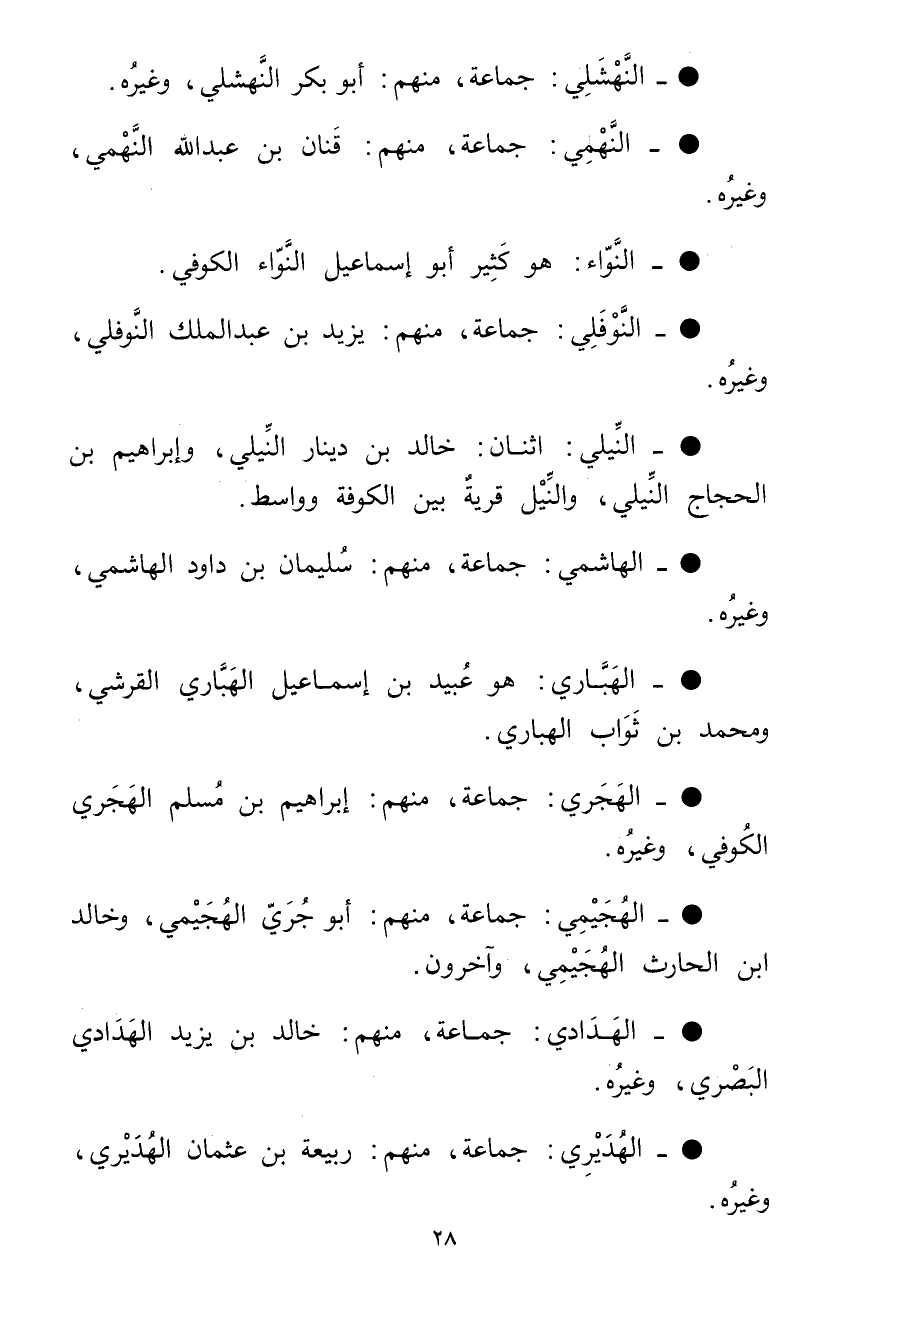 ● ـ النَّهْشَلِي: جماعة، منهم: أبو بكر النَّهشلي، وغيرُه.
● ـ النَّهْمِي: جماعة، منهم: قَنان بن عبدالله النَّهْمي،
وغيرُه.
● ـ النَّوّاء: هو كَثِير أبو إسماعيل النَّوّاء الكوفي.
● ـ النَّوْفَلِي: جماعة، منهم: يزيد بن عبدالملك النَّوفلي،
وغيرُه.
● ـ النِّيلي: اثنان: خالد بن دينار النِّيلي، وإبراهيم بن
الحجاج النِّيلي، والنِّيْل قريةٌ بين الكوفة وواسط.
● ـ الهاشمي: جماعة، منهم: سُليمان بن داود الهاشمي،
وغيرُه.
● ـ الهَبَّاري: هو عُبيد بن إسماعيل الهَبَّاري القرشي،
ومحمد بن ثَوَاب الهباري.
● ـ الهَجَري: جماعة، منهم: إبراهيم بن مُسلم الهَجَري
الكُوفي، وغيرُه.
● ـ الهُجَيْمِي: جماعة، منهم: أبو جُرَيّ الهُجَيْمي، وخالد
ابن الحارث الهُجَيْمِي، وآخرون.
● ـ الهَدَادي: جماعة، منهم: خالد بن يزيد الهَدَادي
البَصْري، وغيرُه.
● ـ الهُدَيْرِي: جماعة، منهم: ربيعة بن عثمان الهُدَيْري،
وغيرُه.
٢٨